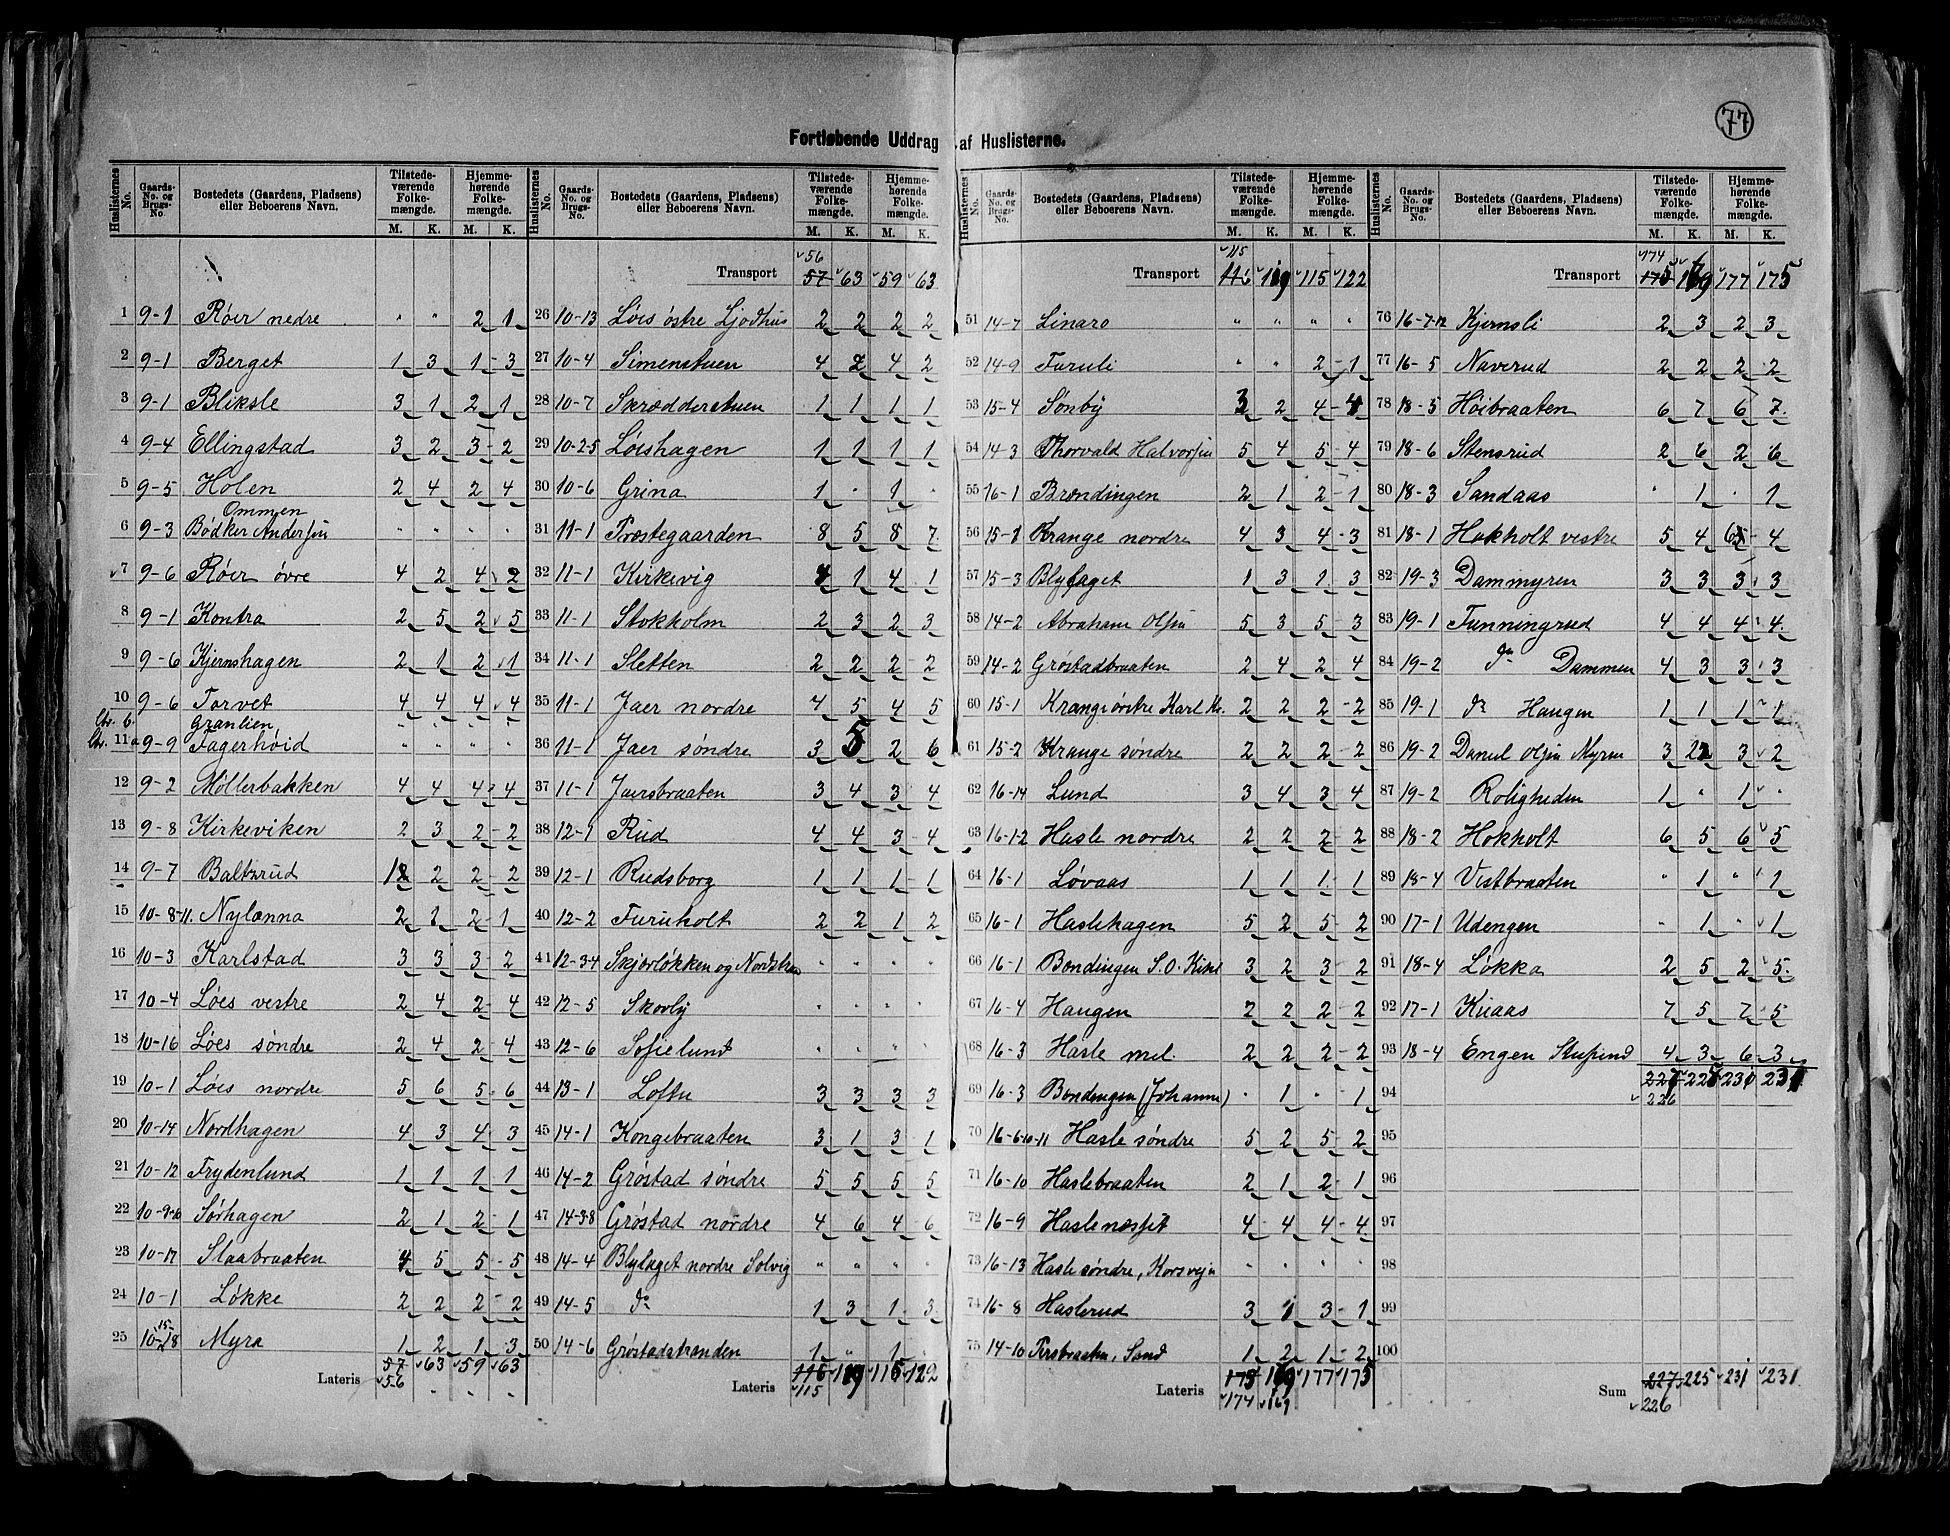 77
Fortløbende Uddrag af Huslisterne.
Huslisternes No. | Gaards-No. og Brugs-No. | Bostedets (Gaardens, Pladsens) eller Beboerens Navn. | Tilstedeværende Folkemængde. M. K. | Hjemmehørende Folkemængde. M. K.
1 9-1 Røer nedre " " 2 1
2 9-1 Berget 1 3 1 3
3 9-1 Bliksle 3 1 2 1
4 9-4 Ellingstad 3 2 3 2
5 9-5 Holen 2 4 2 4
Ommen
6 9-3 Bødker Andersen " " " "
7 9-6 Røer øvre 4 2 4 2
8 9-1 Kontra 2 5 2 5
9 9-6 Kjernshagen 2 1 2 1
10 9-6 Torvet 4 4 4 4
Ltr. b. Granlien " " " "
Ltr. 11a 9-9 Fagerhøid " " " "
12 9-2 Møllerbakken 4 4 4 4
13 9-8 Kirkeviken 2 3 2 2
14 9-7 Baltzrud 2 2 2
15 10-8-11. Nylænna 2 1 2 1
16 10-3 Karlstad 3 3 3 2
17 10-4 Løes vestre 2 4 2 4
18 10-16 Løes søndre 2 4 2 4
19 10-1 Løes nordre 5 6 5 6
20 10-14 Nordhagen 4 3 4 3
21 10-12 Frydenlund 1 1 1 1
22 10-9-16 Sørhagen 2 1 2 1
23 10-17 Slaabraaten 4 5 5 5
24 10-1 Løkke 2 2 2 2
25 10-15-18 Myra 1 2 1 3
Lateris 57 63 59 63
56
Huslisternes No. | Gaards-No. og Brugs-No. | Bostedets (Gaardens, Pladsens) eller Beboerens Navn. | Tilstedeværende Folkemængde. M. K. | Hjemmehørende Folkemængde. M. K.
56
Transport 57 63 59 63
26 10-13 Løes østre Ljodhus 2 2 2 2
27 10-4 Simenstuen 4 2 4 2
28 10-7 Skrædderstuen 1 1 1 1
29 10-2-5 Løeshagen 1 1 1 1
30 10-6 Grina 1 " 1 "
31 11-1 Præstegaarden 8 5 8 7
32 11-1 Kirkevig 4 1 4 1
33 11-1 Stokholm 2 3 2 3
34 11-1 Sletten 2 2 2 2
35 11-1 Jaer nordre 4 5 4 5
36 11-1 Jaer søndre 3 5 2 6
37 11-1 Jaersbraaten 3 4 3 4
38 12-1 Rud 4 4 3 4
39 12-1 Rudsborg 1 1 1 1
40 12-2 Furuholt 2 2 1 2
41 12-3-4 Skjørløkken og " " " "
42 12-5 Skovly " " " "
43 12-6 Sofielund " " " "
44 13-1 Loftu 3 3 3 3
45 14-1 Kongebraaten 3 1 3 1
46 14-2 Grøstad søndre 5 5 5 5
47 14-3-8 Grøstad nordre 4 6 4 6
48 14-4 Blylaget nordre Solvig " " " "
49 14-5 do 1 3 1 3
50 14-6 Grøstadstranden 1 " 1 "
Lateris 116 119 115 122
115
Huslisternes No. | Gaards-No. og Brugs-No. | Bostedets (Gaardens, Pladsens) eller Beboerens Navn. | Tilstedeværende Folkemængde. M. K. | Hjemmehørende Folkemængde. M. K.
115
Transport 116 119 115 122
51 14-7 Linaro " " " "
52 14-9 Furuli " " 2 1
53 15-4 Sønby 3 2 4 4
54 14-3 Thorvald Halvorsen 5 4 5 4
55 16-1 Brændingen 2 1 2 1
56 15-1 Krange nordre 4 3 4 3
57 15-3 Blylaget 1 3 1 3
58 14-2 Abraham Olsen 5 3 5 3
59 14-2 Grøstadbraaten 2 4 2 4
60 15-1 Krange østre Karl 2 2 2 2
61 15-2 Krange søndre 2 2 2 2
62 16-14 Lund 3 4 3 4
63 16-1-2 Hasle nordre 2 2 2 2
64 16-1 Løvaas 1 1 1 1
65 16-1 Haslehagen 5 2 5 2
66 16-1 Bondingen S.O. 3 2 3 2
67 16-4 Haugen 2 2 2 2
68 16-3 Hasle mel. 2 2 2 2
69 16-3 Bondingen (Johanne) " 1 " 1
70 16-6-10-11 Hasle søndre 5 2 5 2
71 16-10 Haslebraaten 2 1 2 1
72 16-9 Haslenæsset 4 4 4 4
73 16-13 Hasle søndre, Korsvejen " " " "
74 16-8 Haslerud 3 1 3 1
75 14-10 Persbraaten, Sand 1 2 1 2
Lateris 175 169 177 175
174 169
Huslisternes No. | Gaards-No. og Brugs-No. | Bostedets (Gaardens, Pladsens) eller Beboerens Navn. | Tilstedeværende Folkemængde. M. K. | Hjemmehørende Folkemængde. M. K.
174
Transport 175 169 177 175
76 16-7-12 Kjernsli 2 3 2 3
77 16-5 Naverud 2 2 2 2
78 18-5 Høibraaten 6 7 6 7
79 18-6 Stensrud 2 6 2 6
80 18-3 Sandaas " 1 " 1
81 18-1 Hokholt vestre 5 4 6 4
82 19-3 Dammyren 3 3 3 3
83 19-1 Tunningrud 4 4 4 4
84 19-2 do Dammen 4 3 3 3
85 19-1 do Haugen 1 1 1 1
86 19-2 Daniel Olsen Myren 3 2 3 2
87 19-2 Roligheden 1 " 1 "
88 18-2 Hokholt 6 5 6 5
89 18-4 Vestbraaten " 1 " 1
90 17-1 Udengen " 1 " 1
91 18-4 Løkka 2 5 2 5
92 17-1 Knaas 7 5 7 5
93 18-4 Engen Stupend 4 3 6 3
227 225 231 231
226
94
95
96
97
98
99
100
Sum 227 225 231 231
226